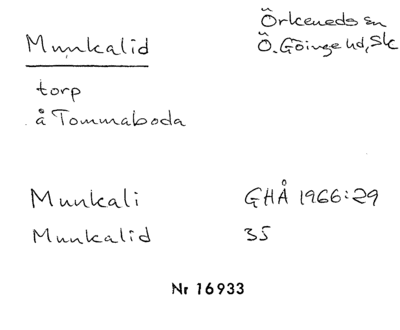 Örkeneds sn
Munkalid Ö. Göinge hd, Sk
torp
å Tommaboda
Munkali GHÅ 1966:29
Munkalid 35
Nr 16933